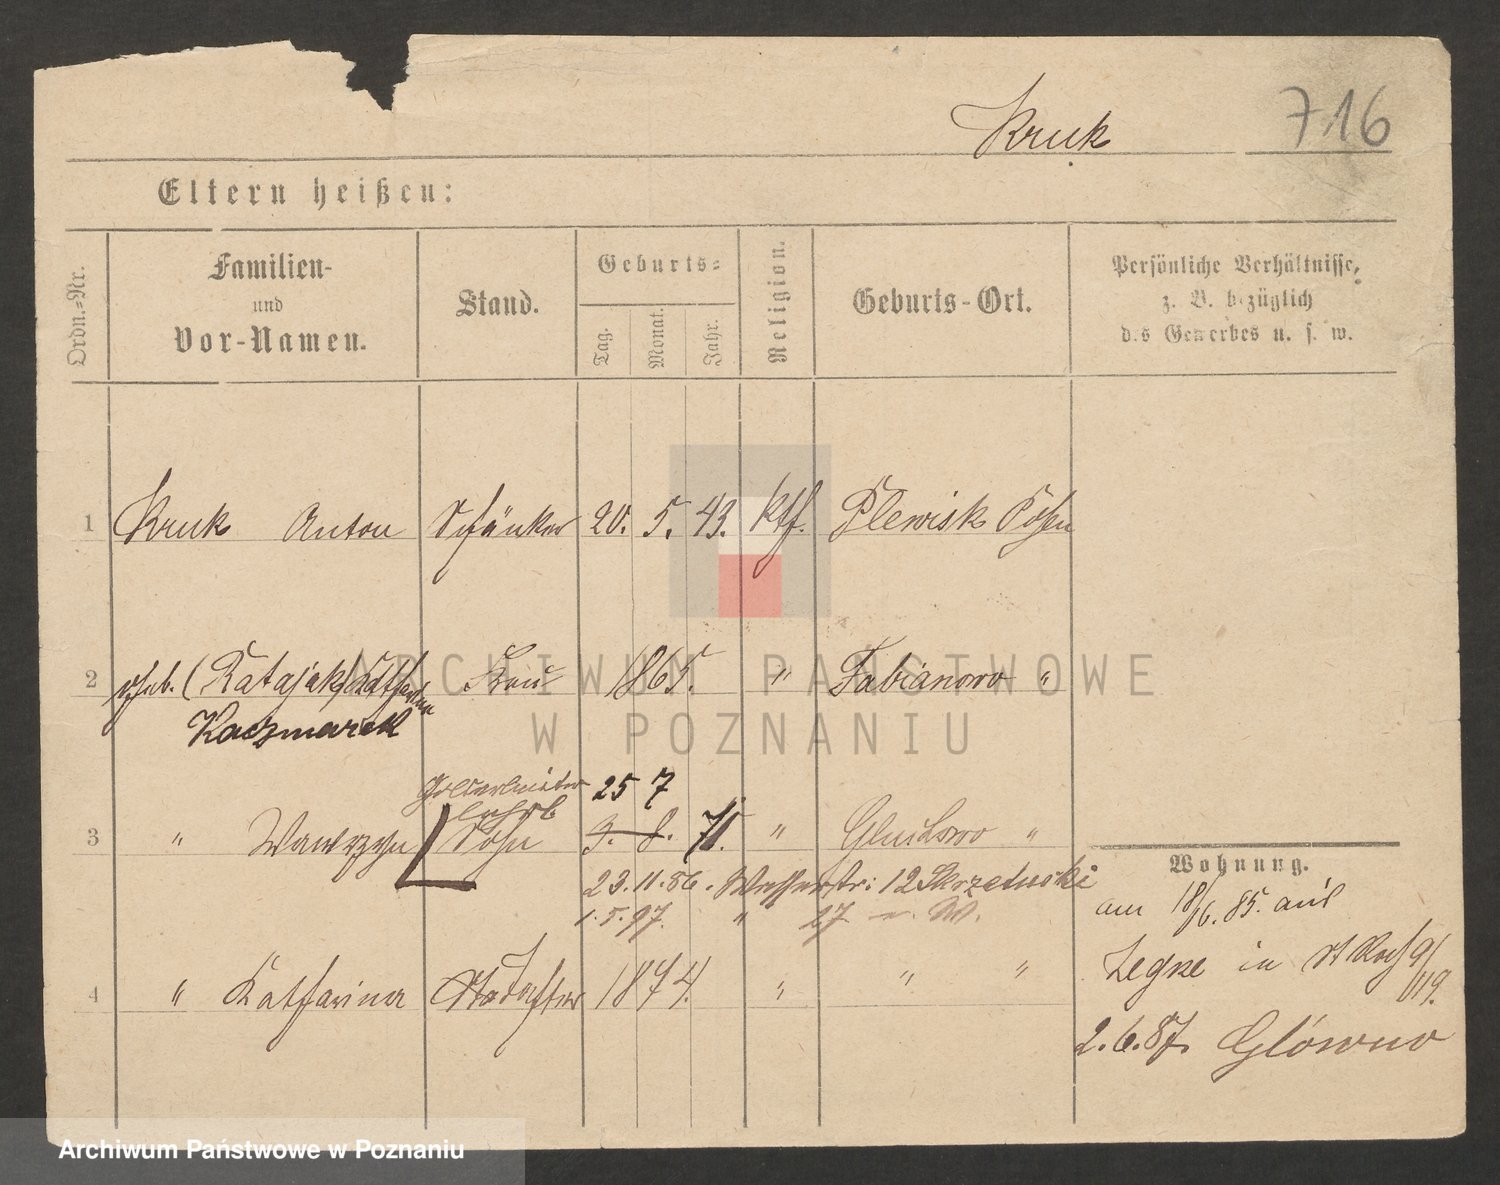 Kruk 716
Eltern heißen:
Ordn.-Nr. Familien- und Vor-Namen. Stand. Geburts- Tag. Monat. Jahr. Religion. Geburts-Ort. Persönliche Verhältnisse, z. B. bezüglich des Gewerbes u. s. w.
1 Kruk Anton Schänker 20. 5. 43. kth. Plewisk Posen
2 geb. (Ratajczak) Katharina Frau 1865. " Fabianowo "
Kaczmarek
25 7
3 " Wawrzyn Sohn 3. 8. 71. " Gluchowo "
Wohnung.
23. 11. 86. Wasserstr: 12 Skrzetuski
am 18/6. 85. aus
1. 5. 97. " 27 W.
Zegrze in St Roch 9/
119.
4 " Katharina Tochter 1874. " " "
2. 6. 87. Glówno
ARCHIWUM PAŃSTWOWE
W POZNANIU
Archiwum Państwowe w Poznaniu